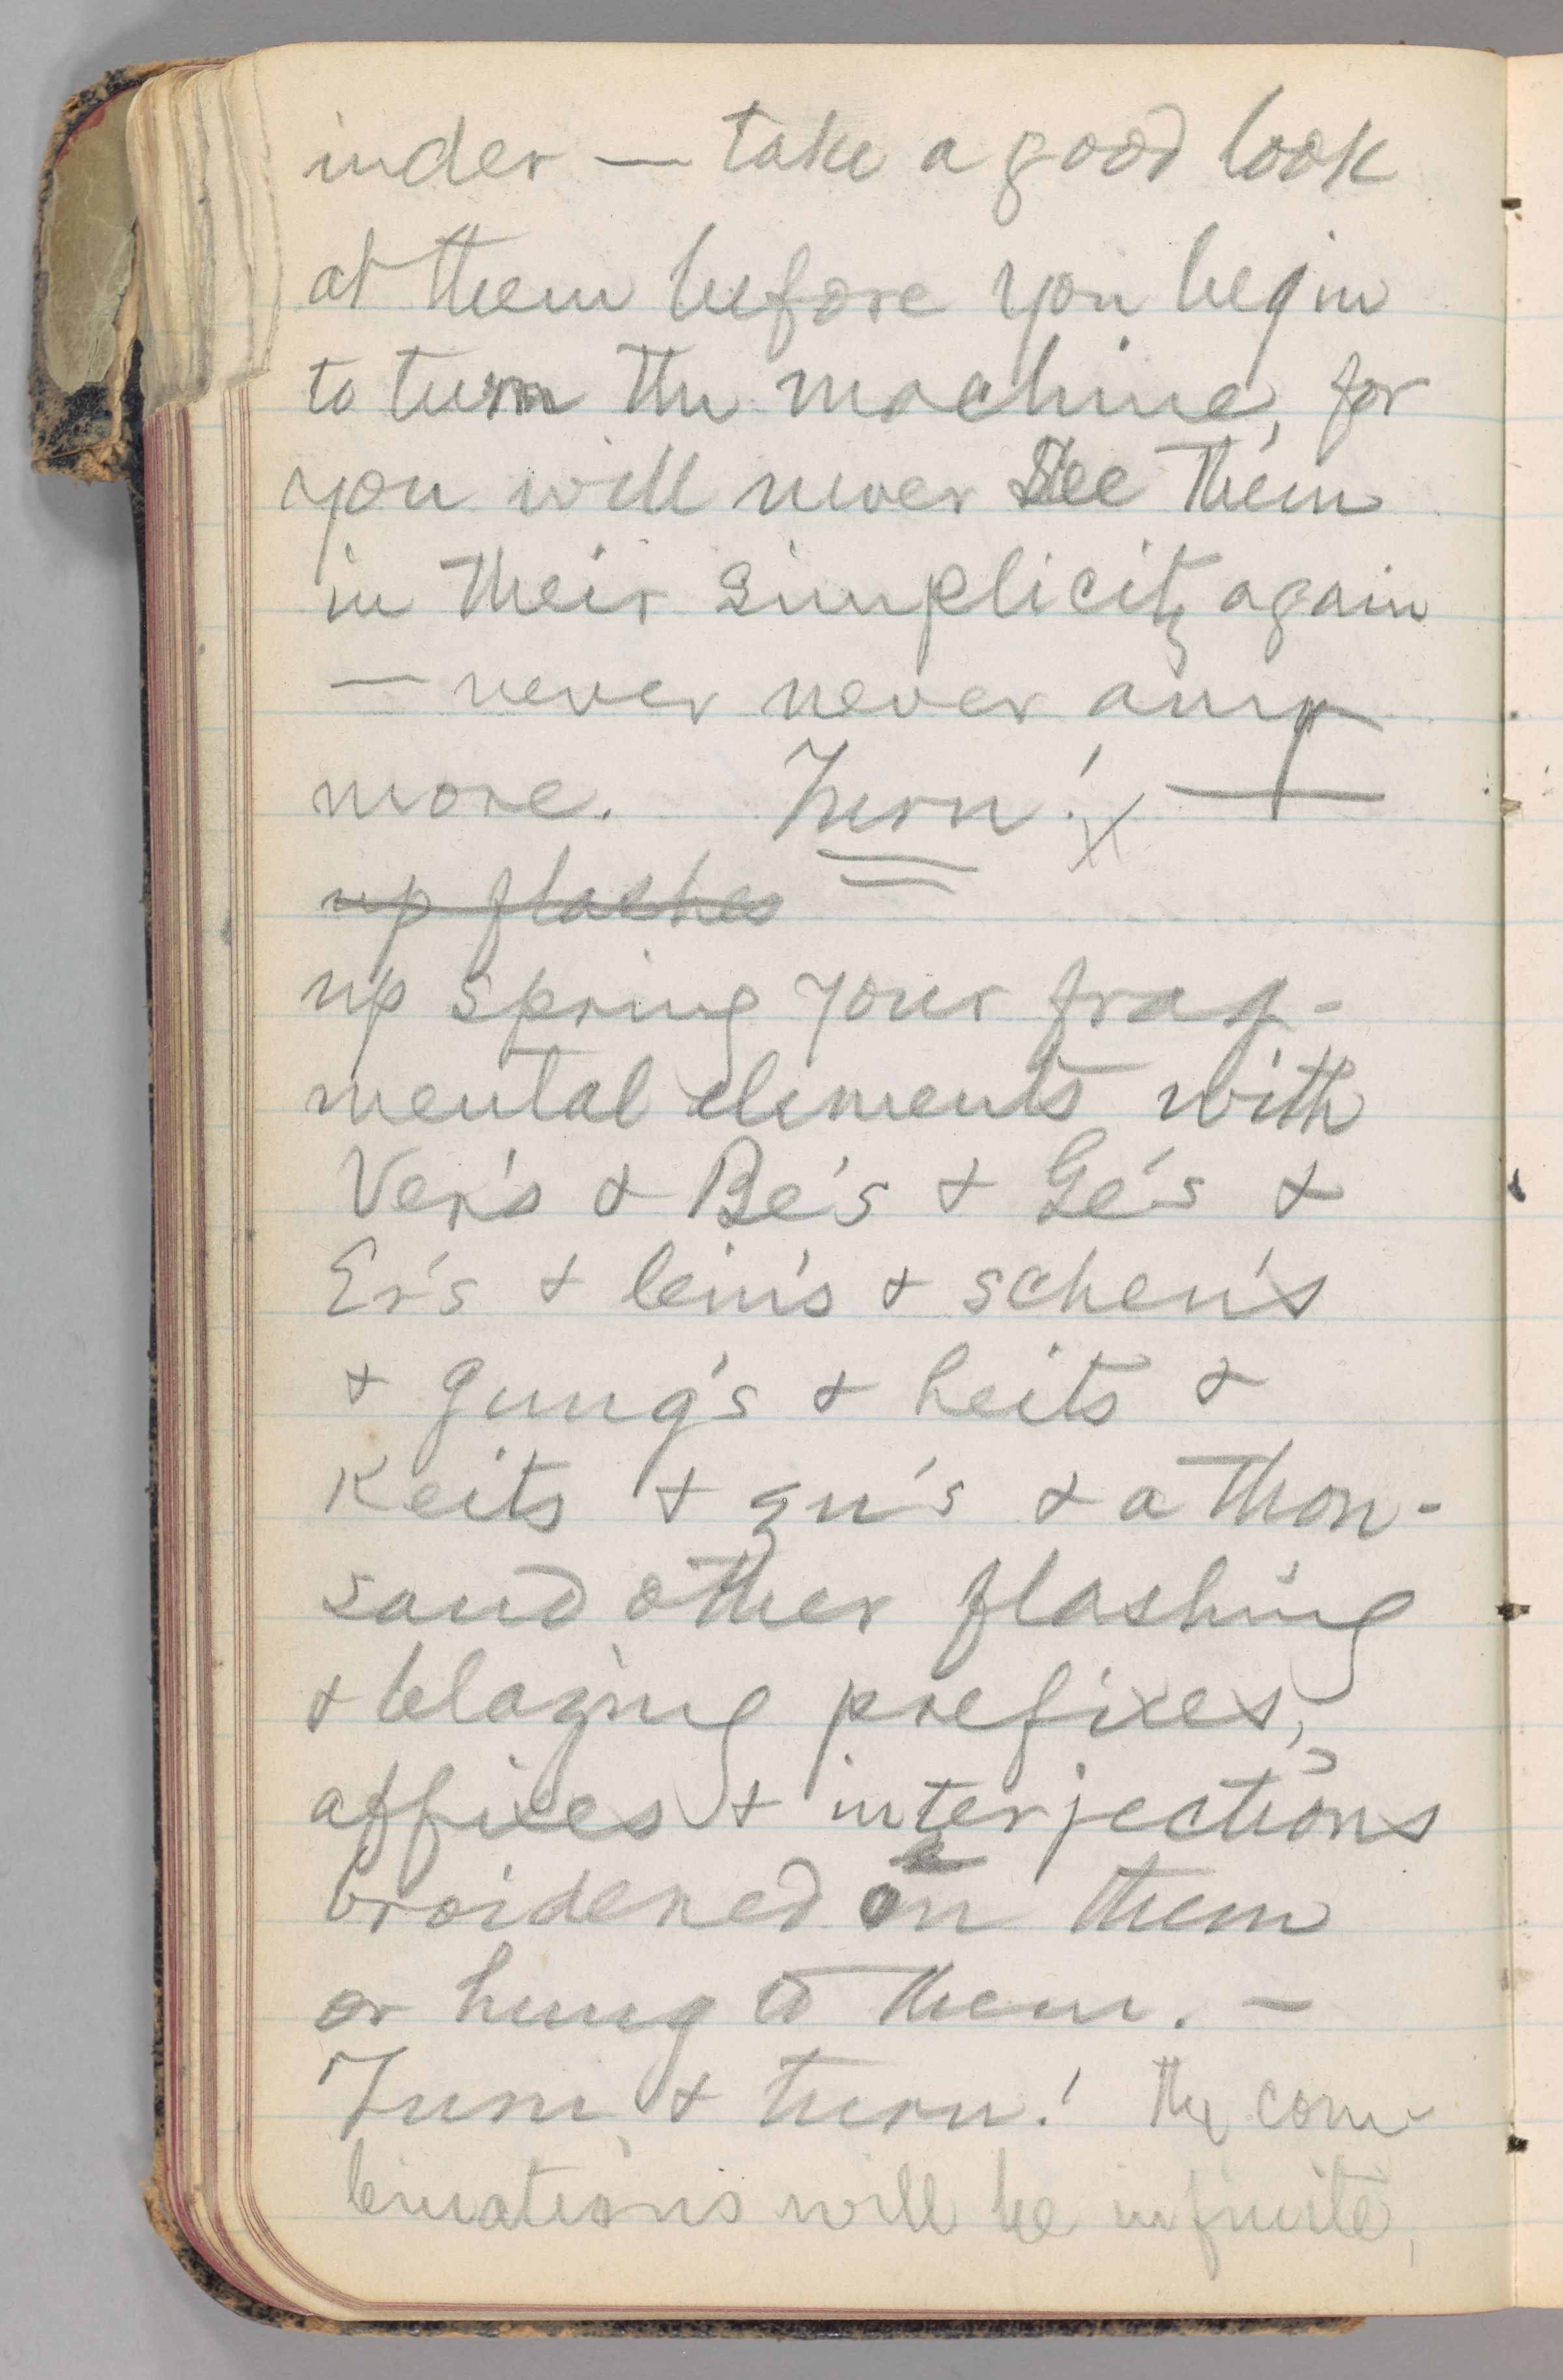 inder — take a good look
at them before you begin
to turn the machine, for
you will never see them
in their simplicity again
— never never any
more. Turn! X —
up flashes
up spring your frag-
mental elements with
Ver's & Be's & Ge's &
Er's & lein's & schen's
& gung's & heits &
Keits & zu's & a thou-
sand other flashing
& blazing prefixes,
affixes & interjections
broidered on them
or hung to them. —
Turn & turn! The com-
binations will be infinite,